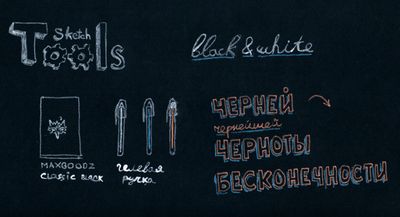 Sketch
Tools
black & white
MAXGOODZ
classic black
гелевая
ручка
ЧЕРНЕЙ
чернейшей
ЧЕРНОТЫ
БЕСКОНЕЧНОСТИ